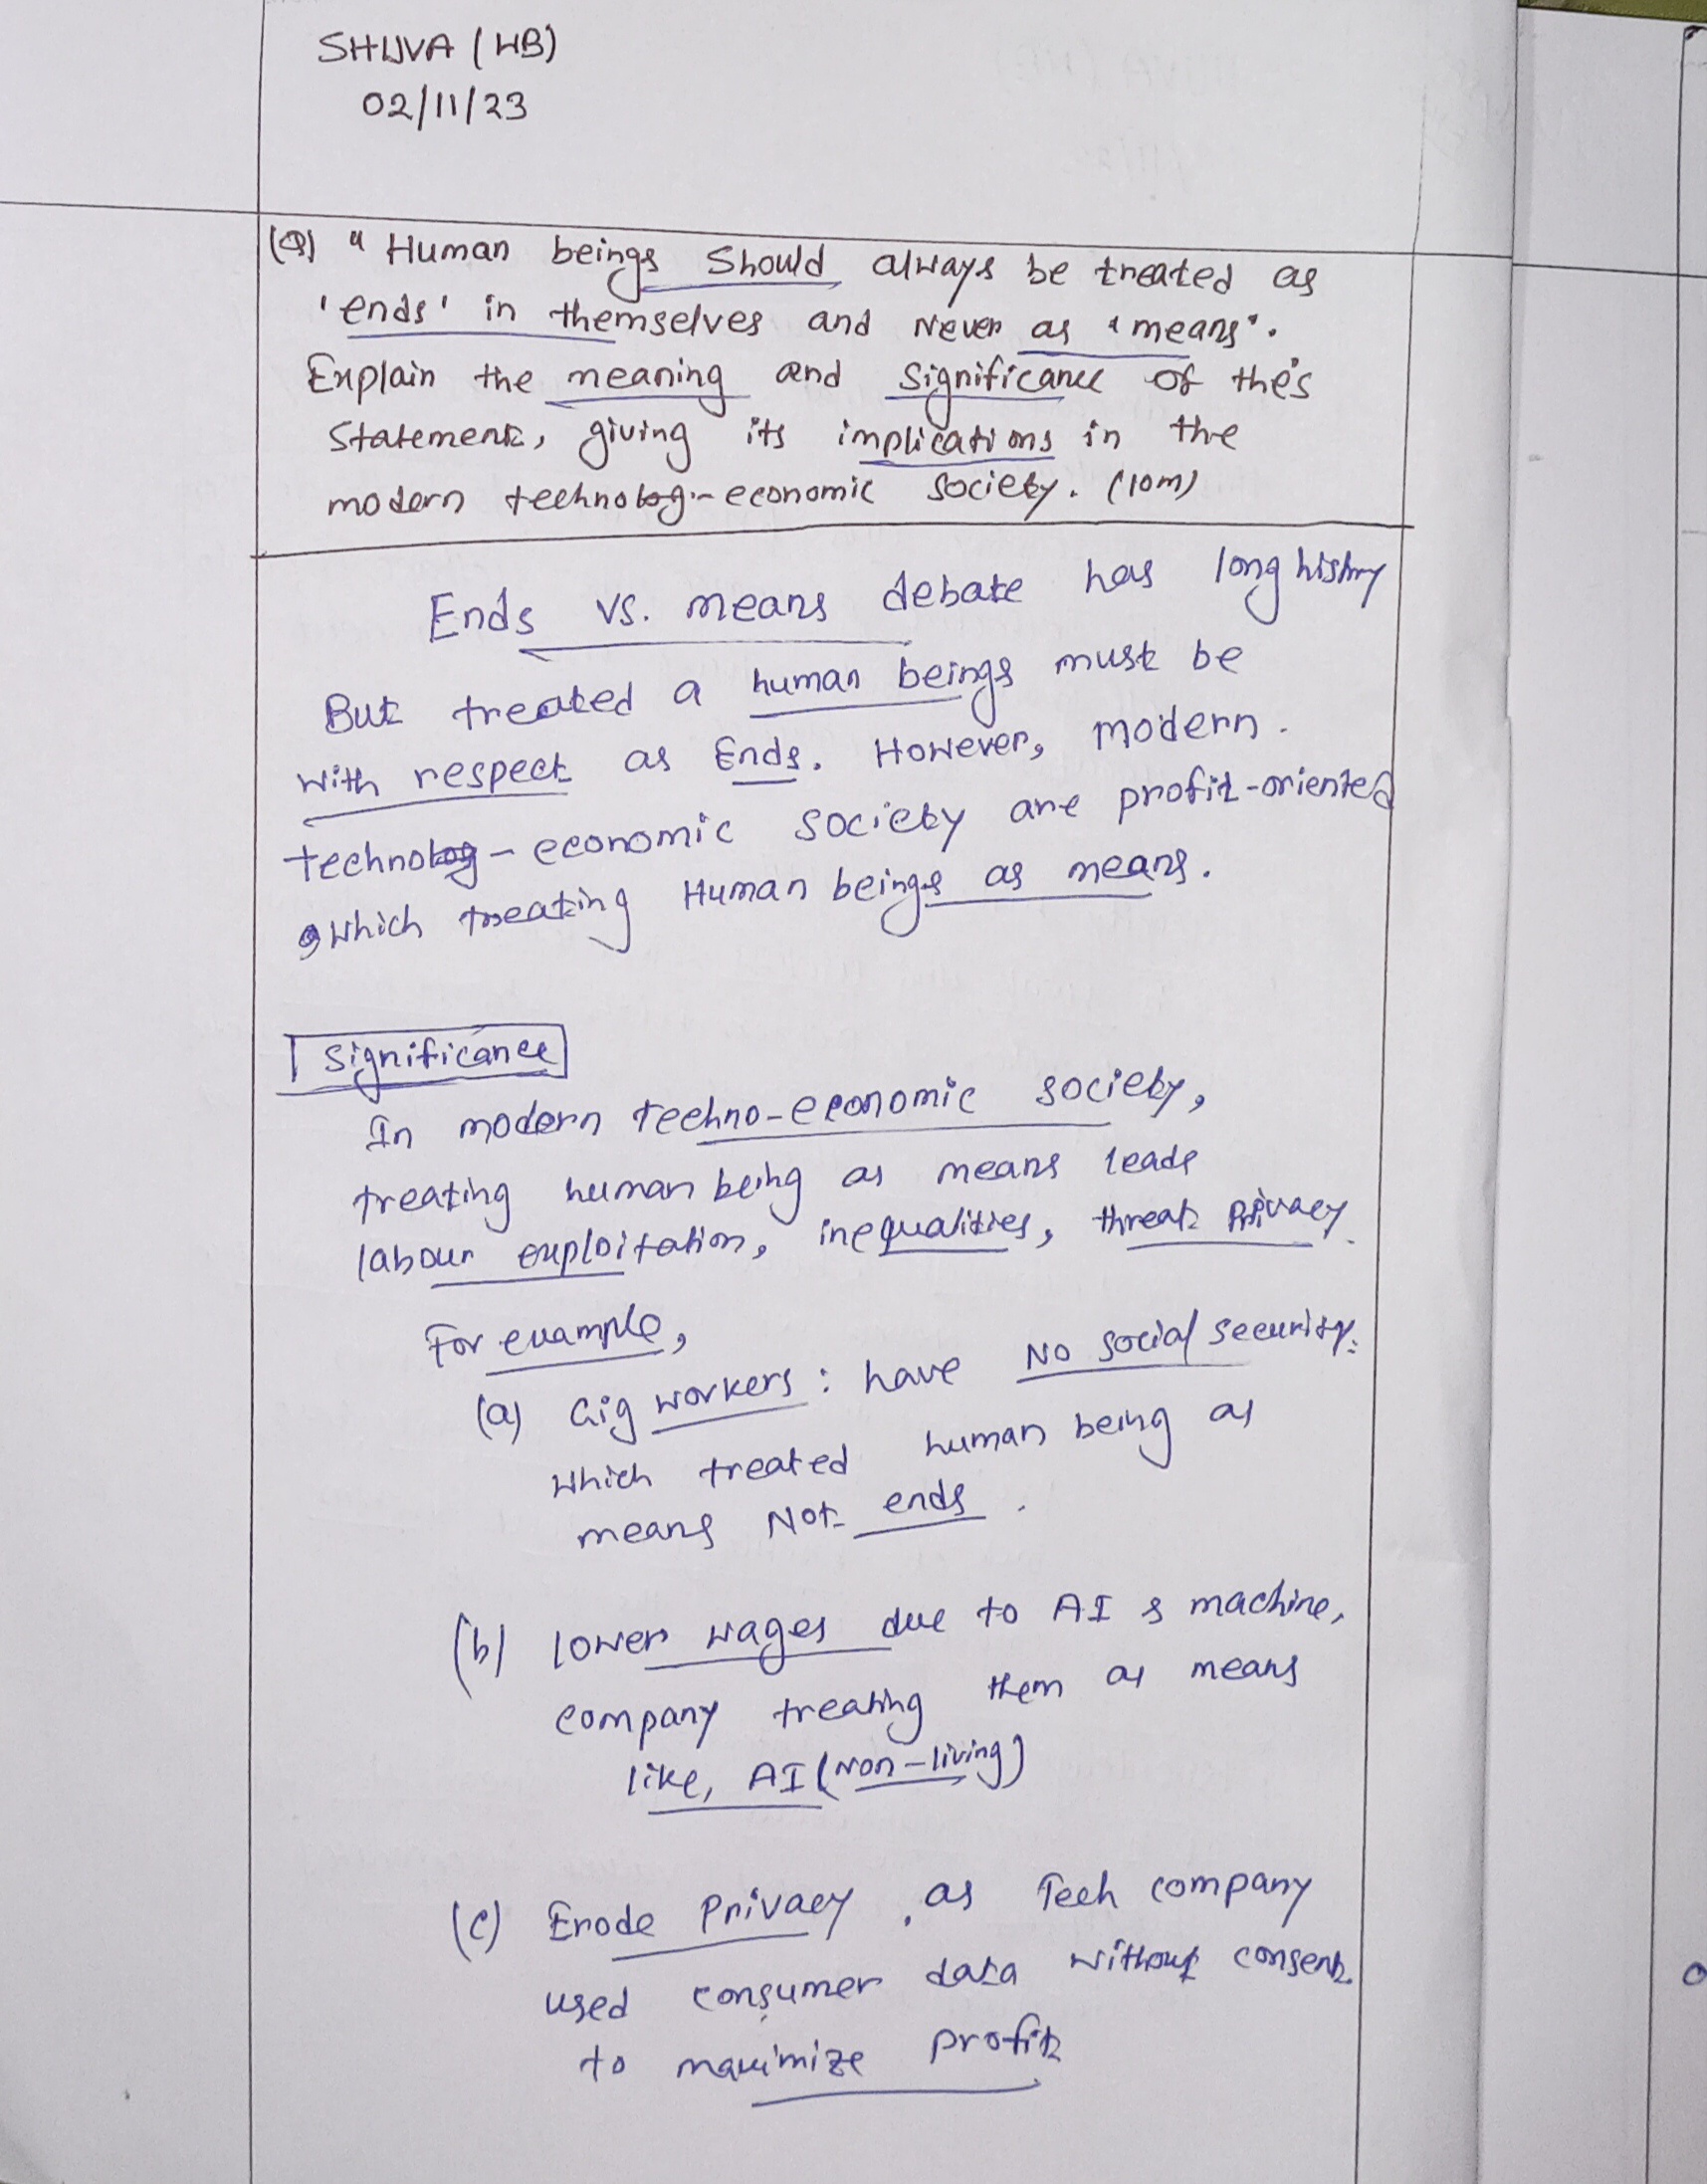 SHUVA (WB)
02/11/23
(Q) " Human beings Should always be treated as
'ends' in themselves and Never as "means".
Explain the meaning and Significance of this
Statement, giving its implications in the
modern technolog-economic Society. (10m)
Ends vs. means debate has long history
But treated a human beings must be
with respect as Ends. However, modern
technolog-economic society are profit-oriented
which treating Human beings as means.
Significance
In modern techno-economic society,
treating human being as means leads
labour exploitation, inequalities, threat privacy.
For example,
(a) Gig workers : have No social security.
which treated human being as
means Not ends.
(b) lower wages due to AI & machine,
company treating them as means
like, AI (Non-living)
(c) Erode Privacy, as Tech company
used consumer data without consent
to maximize profit